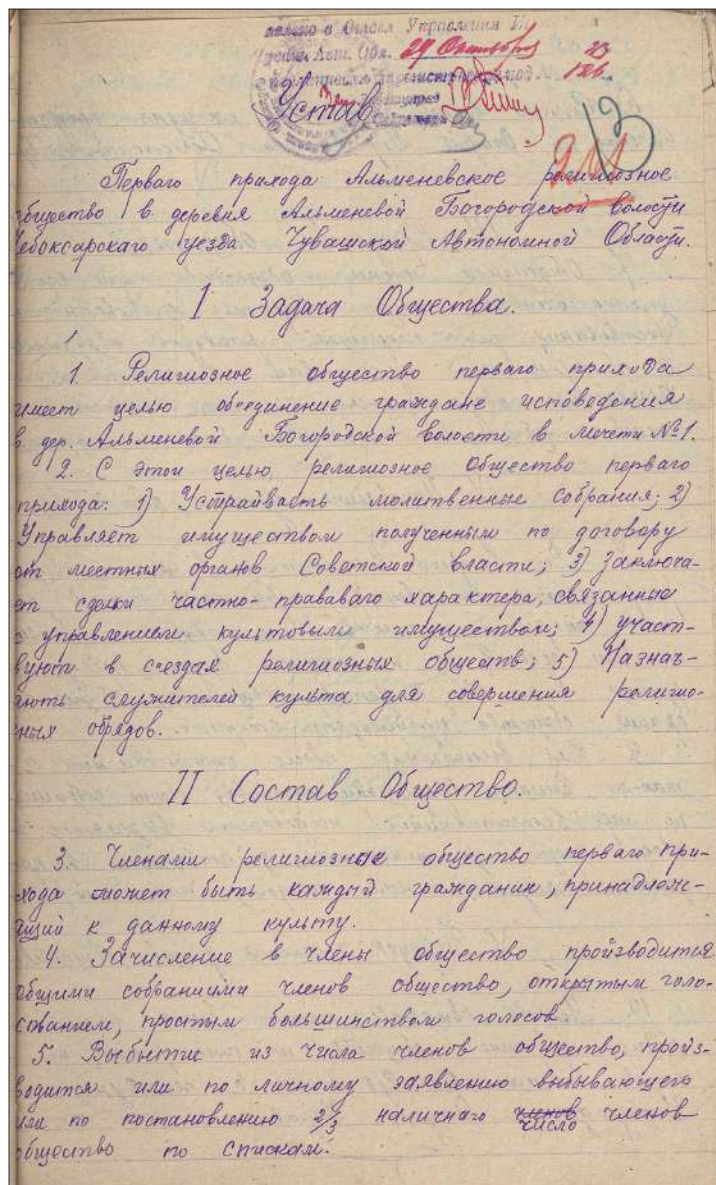 в Отдел Управления
29 Октября 23
126
Устав
13
Перваго прихода Альменевское религиозное
общество в деревня Альменевой Богородской волости
Чебоксарскаго уезда Чувашской Автономной Области.
I Задача Общества.
1.
1. Религиозное общество перваго прихода
имеет целью об'единение граждане исповедения
в дер. Альменевой Богородской волости в мечети № 1.
2. С этой целью религиозное общество перваго
прихода: 1) Устраивасть молитвенные собрания; 2)
Управляет имуществом полученным по договору
от местных органов Советской власти; 3) Заключа-
ет сделки частно-прававаго характера, связанные
с управлением культовым имуществом; 4) участ-
вуют в с'ездах религиозных обществ; 5) Назнач-
ають служителей культа для совершения религио-
зных обрядов.
II Состав Общество.
3. Членами религиозные общество перваго при-
хода может быть каждый гражданин, принадлеж-
ащий к данному культу.
4. Зачисление в члены общество, производится
общими собраниими членов общество, открытым голо-
сованием, простым большинством голосов
5. Выбытие из числа членов общество, произ-
водится или по личному заявлению выбывающего
или по постановлению 2/3 наличнаго членов число членов
общество по спискам.